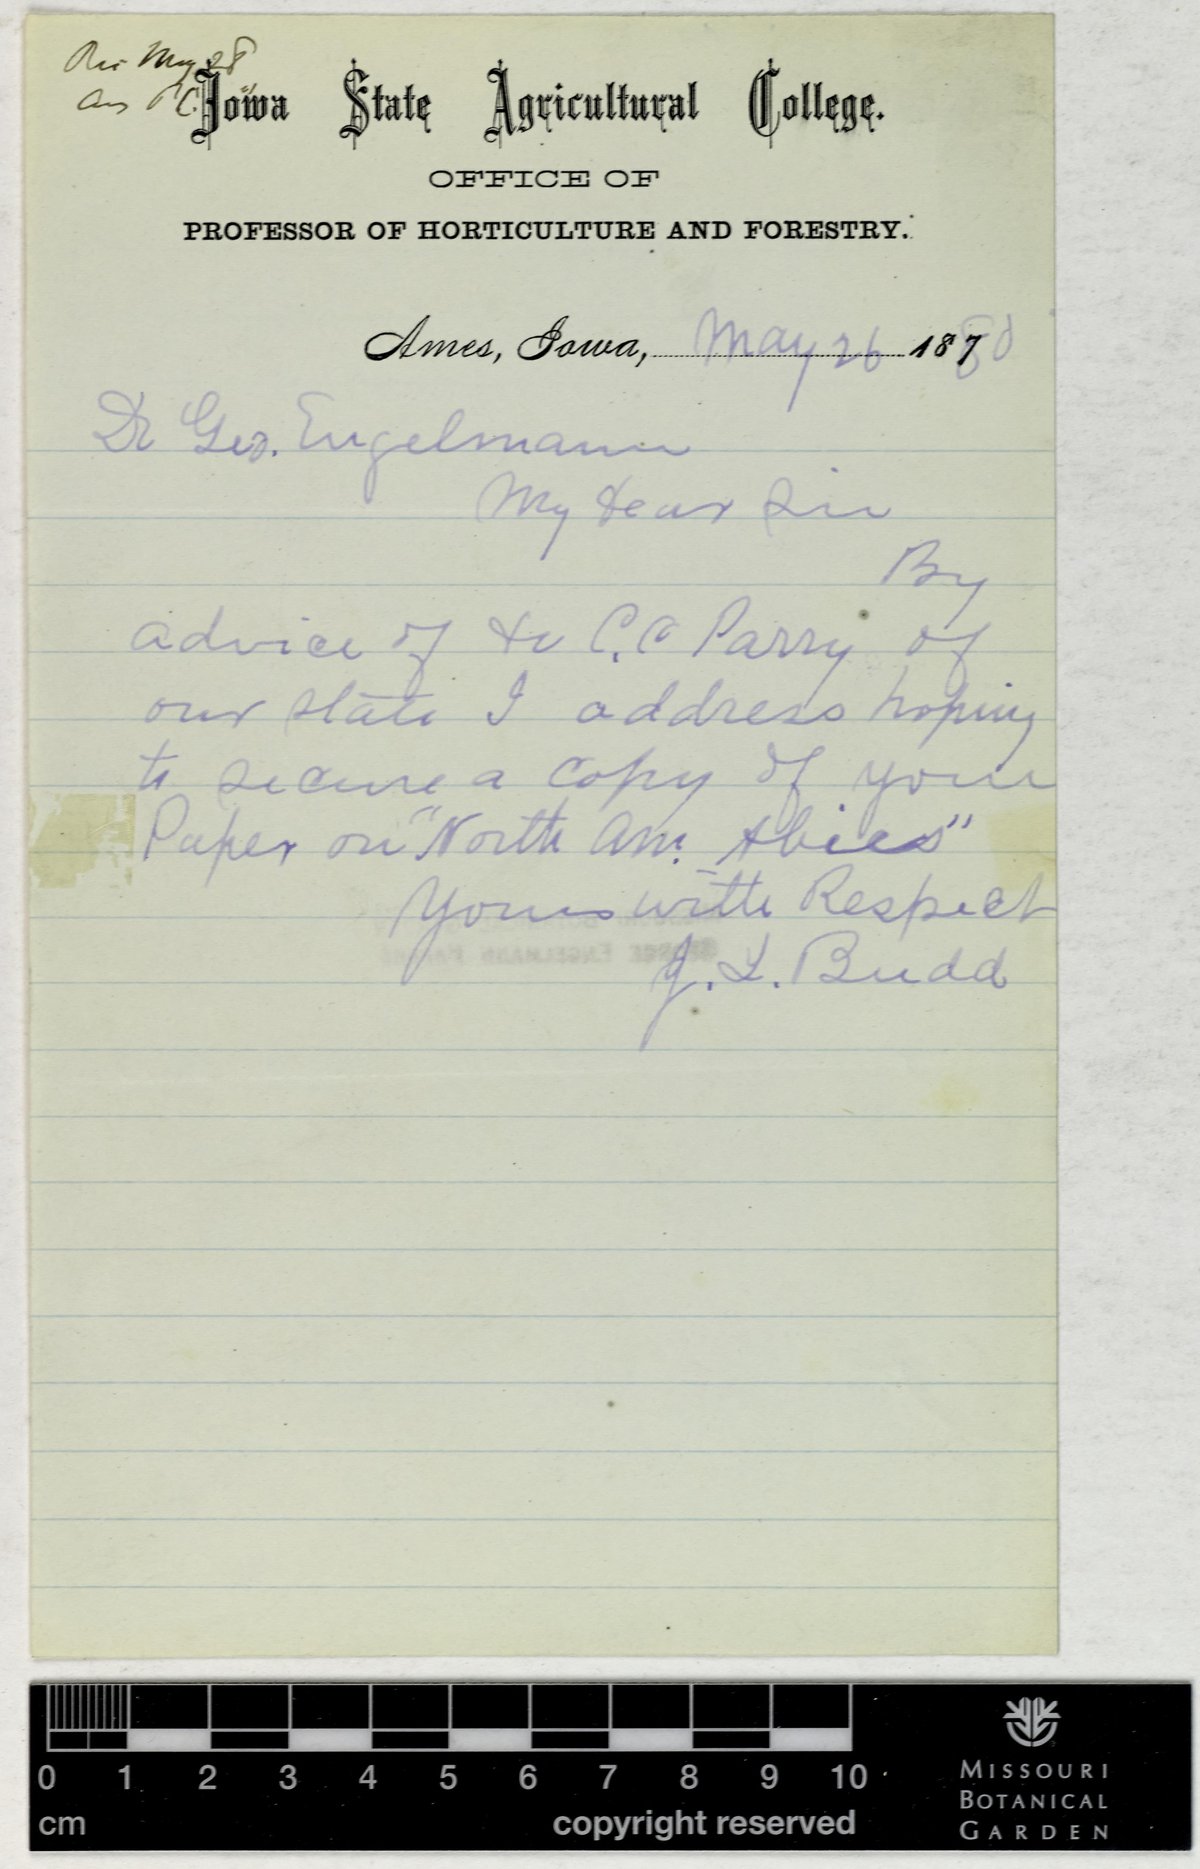 Rec May 28
Ans P C.
Iowa State Agricultural College.
OFFICE OF
PROFESSOR OF HORTICULTURE AND FORESTRY.
Ames, Iowa, May 26 18780
Dr Geo. Engelmann
My Dear Sir
By
advice of Dr C. C Parry of
our state I address hoping
to secure a copy of your
Paper on "North Am. Abies"
Yours with Respect
J. L. Budd
GEORGE ENGELMANN PAPERS
0 1 2 3 4 5 6 7 8 9 10
cm
copyright reserved
MISSOURI
BOTANICAL
GARDEN